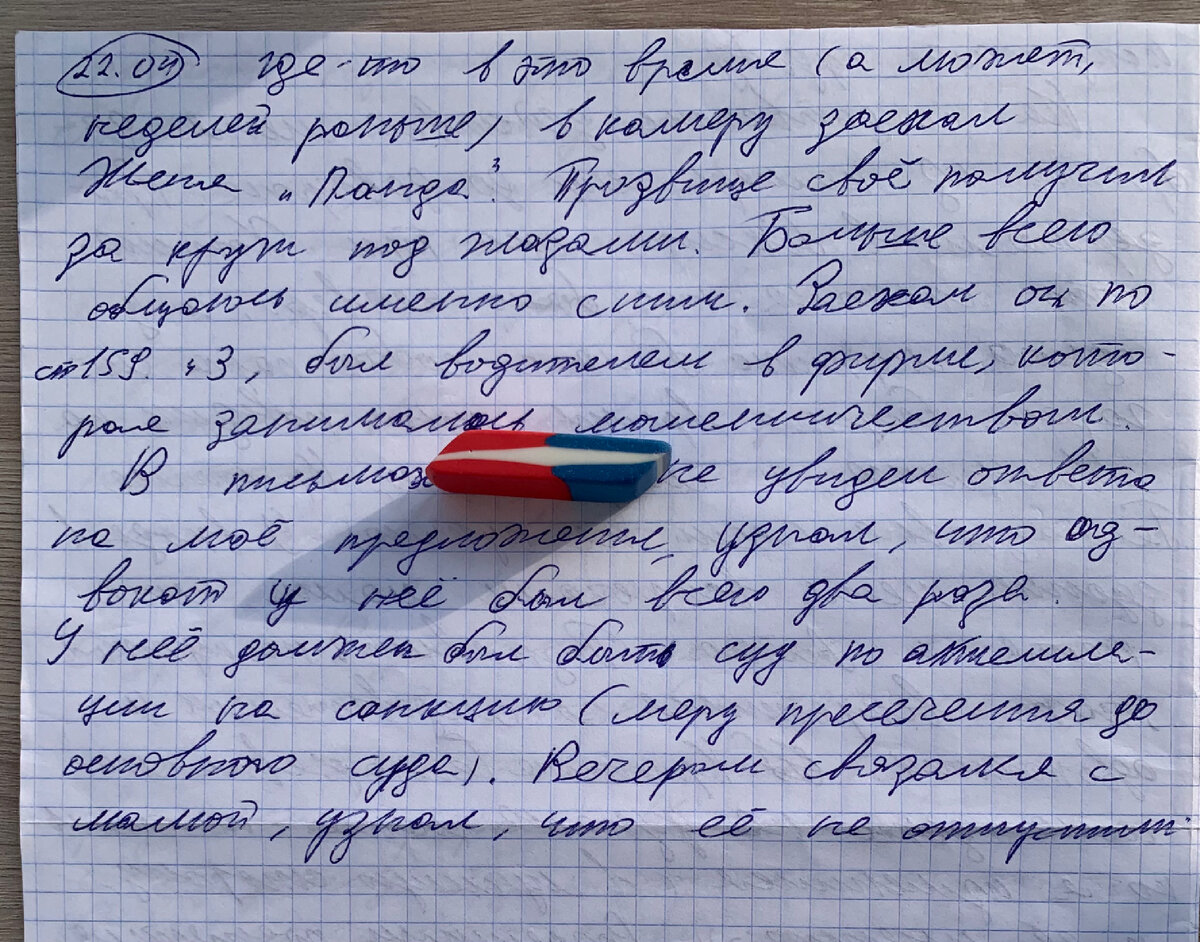 22.04 где-то в это время (а может,
неделей раньше) в камеру заехал
Женя „Панда". Прозвище своё получил
за круги под глазами. Больше всего
общаюсь именно с ним. Заехал он по
ст 159. ч3, был водителем в фирме, кото-
рая занималась мошенничеством.
В письмах не увидел ответа
на моё предложение, узнал, что ад-
вокат у неё был всего два раза.
У неё должен был быть суд по аппелля-
ции на санкцию (меру пресечения до
основного суда). Вечером связался с
мамой, узнал, что её не отпустили